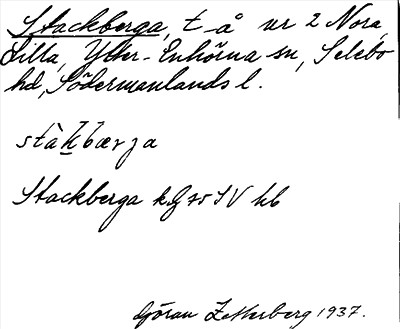 Stackberga, t å nr 2 Nora,
Lilla, Ytter-Enhörna sn, Selebo
hd, Södermanlands l.
stàkbærja
Stackberga k.G 75 SV hb
Göran Zetterberg 1937.